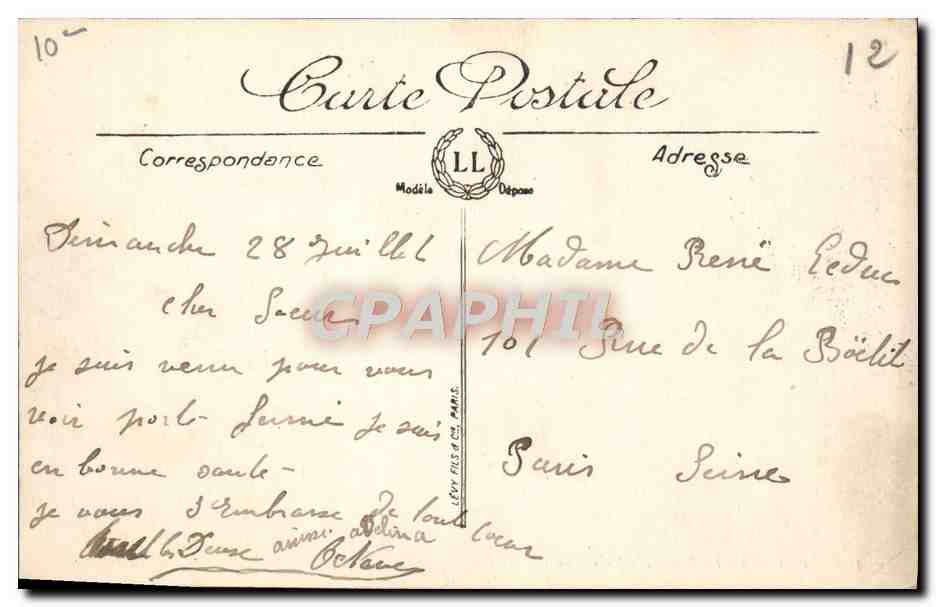 10
12
Carte Postale
Correspondance
LL
Adresse
Modèle Déposé
Dimanche 28 juillet
cher Soeur
je suis venu pour vous
voir porte fermé je suis
en bonne sante
je vous s'embrasse de tout
coeur
ainsi
Octave
Madame René Leduc
101 Rue de la Boëtit
Paris Seine
LÉVY FILS & Cie, PARIS.
CPAPHIL